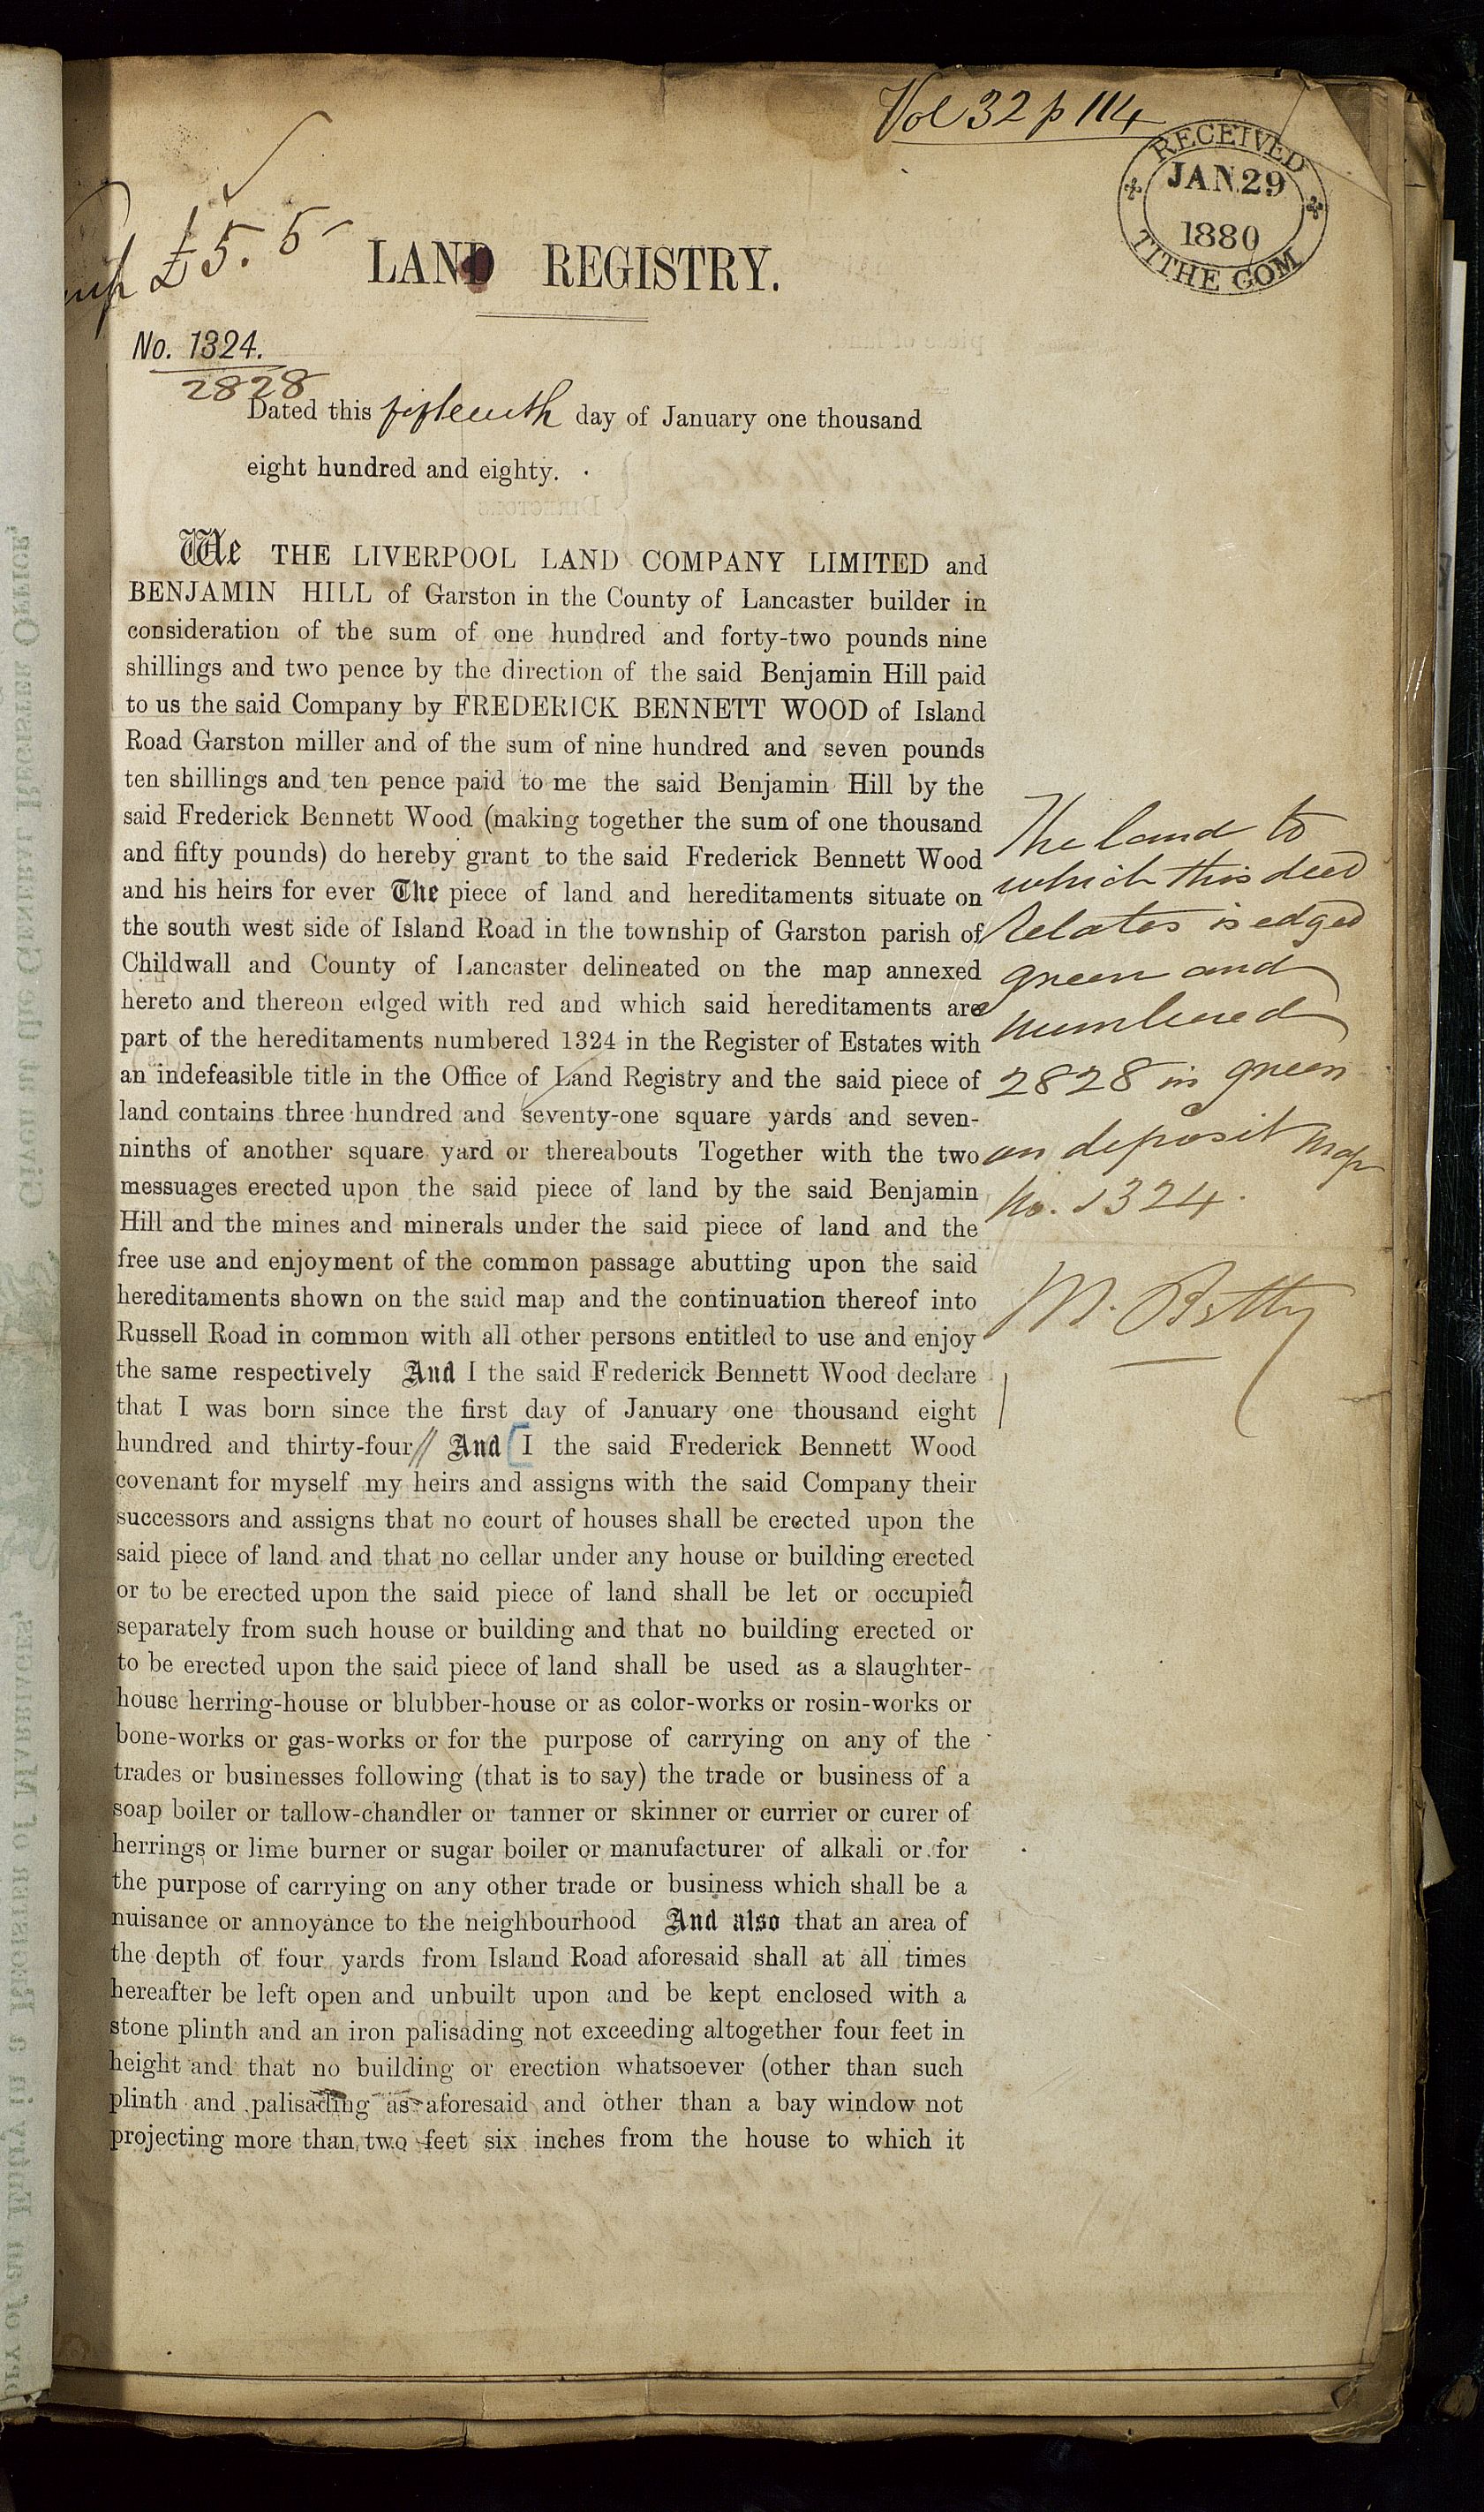 Vol 32 p 114
RECEIVED
JAN 29
1880
TITHE COM
£5. 5
LAND REGISTRY.
No. 1324.
2828
Dated this fifteenth day of January one thousand
eight hundred and eighty.
We THE LIVERPOOL LAND COMPANY LIMITED and
BENJAMIN HILL of Garston in the County of Lancaster builder in
consideration of the sum of one hundred and forty-two pounds nine
shillings and two pence by the direction of the said Benjamin Hill paid
to us the said Company by FREDERICK BENNETT WOOD of Island
Road Garston miller and of the sum of nine hundred and seven pounds
ten shillings and ten pence paid to me the said Benjamin Hill by the
said Frederick Bennett Wood (making together the sum of one thousand
and fifty pounds) do hereby grant to the said Frederick Bennett Wood
and his heirs for ever The piece of land and hereditaments situate on
the south west side of Island Road in the township of Garston parish of
Childwall and County of Lancaster delineated on the map annexed
hereto and thereon edged with red and which said hereditaments are
part of the hereditaments numbered 1324 in the Register of Estates with
an indefeasible title in the Office of Land Registry and the said piece of
land contains three hundred and seventy-one square yards and seven-
ninths of another square yard or thereabouts Together with the two
messuages erected upon the said piece of land by the said Benjamin
Hill and the mines and minerals under the said piece of land and the
free use and enjoyment of the common passage abutting upon the said
hereditaments shown on the said map and the continuation thereof into
Russell Road in common with all other persons entitled to use and enjoy
the same respectively And I the said Frederick Bennett Wood declare
that I was born since the first day of January one thousand eight
hundred and thirty-four// And [I the said Frederick Bennett Wood
covenant for myself my heirs and assigns with the said Company their
successors and assigns that no court of houses shall be erected upon the
said piece of land and that no cellar under any house or building erected
or to be erected upon the said piece of land shall be let or occupied
separately from such house or building and that no building erected or
to be erected upon the said piece of land shall be used as a slaughter-
house herring-house or blubber-house or as color-works or rosin-works or
bone-works or gas-works or for the purpose of carrying on any of the
trades or businesses following (that is to say) the trade or business of a
soap boiler or tallow-chandler or tanner or skinner or currier or curer of
herrings or lime burner or sugar boiler or manufacturer of alkali or for
the purpose of carrying on any other trade or business which shall be a
nuisance or annoyance to the neighbourhood And also that an area of
the depth of four yards from Island Road aforesaid shall at all times
hereafter be left open and unbuilt upon and be kept enclosed with a
stone plinth and an iron palisading not exceeding altogether four feet in
height and that no building or erection whatsoever (other than such
plinth and palisading as aforesaid and other than a bay window not
projecting more than two feet six inches from the house to which it
The land to
which this deed
relates is edged
green and
numbered
2828 in green
on deposit map
No. 1324.